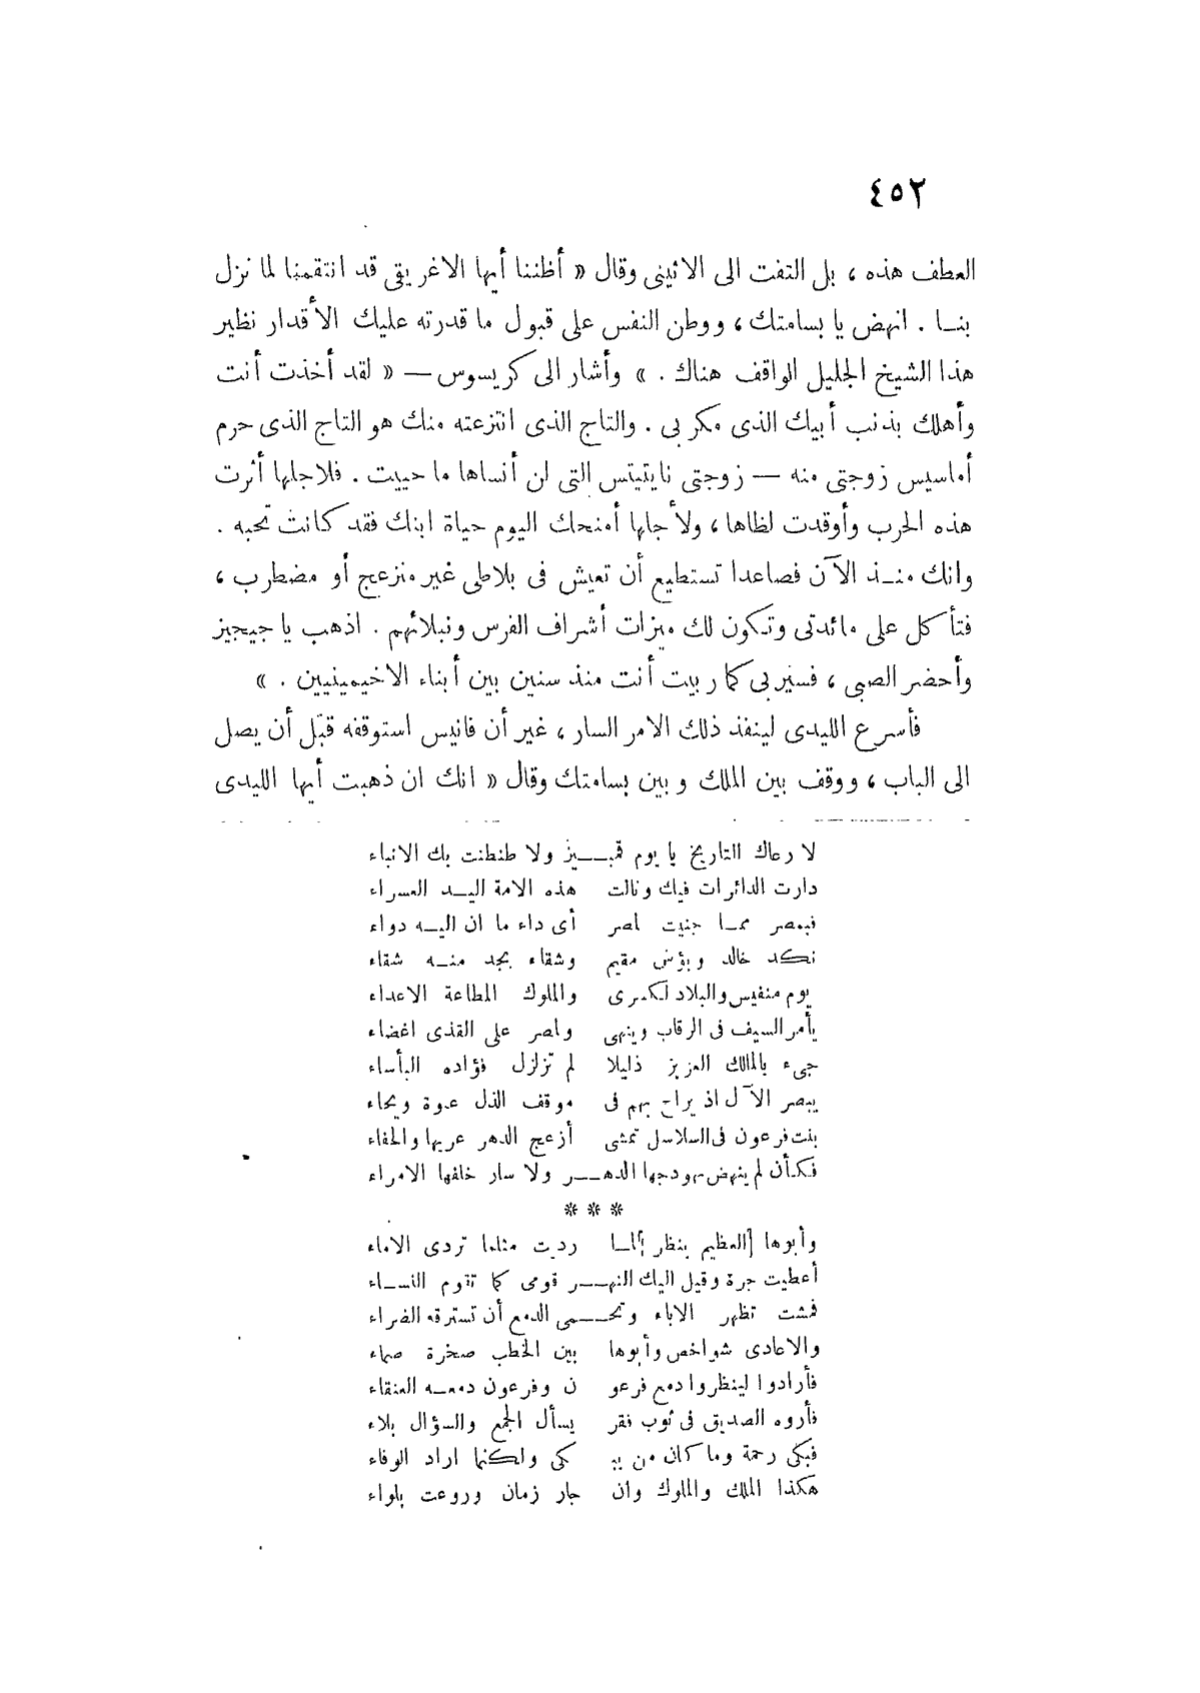 ٤٥٢
العطف هذه ، بل التفت الى الاثينى وقال « أظننا أيها الاغريقى قد انتقمنا لما نزل
بنا . انهض يا بسامتك ، ووطن النفس على قبول ما قدرته عليك الأقدار نظير
هذا الشيخ الجليل الواقف هناك . » وأشار الى كريسوس — « لقد أخذت أنت
وأهلك بذنب أبيك الذى مكر بى . والتاج الذى انتزعته منك هو التاج الذى حرم
أماسيس زوجتى منه — زوجتى نايتيتس التى لن أنساها ما حييت . فلاجلها أثرت
هذه الحرب وأوقدت لظاها ، ولأجلها أمنحك اليوم حياة ابنك فقد كانت تحبه .
وانك منذ الآن فصاعدا تستطيع أن تعيش فى بلاطى غير منزعج أو مضطرب ،
فتأكل على مائدتى وتكون لك ميزات أشراف الفرس ونبلائهم . اذهب يا جيجيز
وأحضر الصبى ، فسيربى كما ربيت أنت منذ سنين بين أبناء الاخيمينيين . »
فأسرع الليدى لينفذ ذلك الامر السار ، غير أن فانيس استوقفه قبل أن يصل
الى الباب ، ووقف بين الملك وبين بسامتك وقال « انك ان ذهبت أيها الليدى
لا رعاك التاريخ يا يوم قمبيز ولا طنطنت بك الانباء
دارت الدائرات فيك ونالت هذه الامة اليد العسراء
فبمصر مما جنيت لمصر أى داء ما ان اليه دواء
نكد خالد وبؤس مقيم وشقاء بجد منه شقاء
يوم منفيس والبلاد لكسرى والملوك المطاعة الاعداء
يأمر السيف فى الرقاب وينهى ولمصر على القذى اغضاء
جىء بالمالك العزيز ذليلا لم تزلزل فؤاده البأساء
يبصر الآل اذ يراح بهم فى موقف الذل عنوة ويجاء
بنت فرعون فى السلاسل تمشى أزعج الدهر عريها والحفاء
فكأن لم ينهض بهودجها الدهر ولا سار خلفها الامراء
* * *
وأبوها العظيم ينظر لما رديت مثلما تردى الاماء
أعطيت جرة وقيل اليك النهر قومى كما تقوم النساء
فمشت تظهر الاباء وتحمى الدمع أن تسترقه الضراء
والاعادى شواخص وأبوها بين الخطب صخرة صماء
فأرادوا لينظروا دمع فرعو ن وفرعون دمعه العنقاء
فأروه الصديق فى ثوب فقر يسأل الجمع والسؤال بلاء
فبكى رحمة وما كان من يبـ كى ولكنما اراد الوفاء
هكذا الملك والملوك وان جار زمان وروعت بلواء